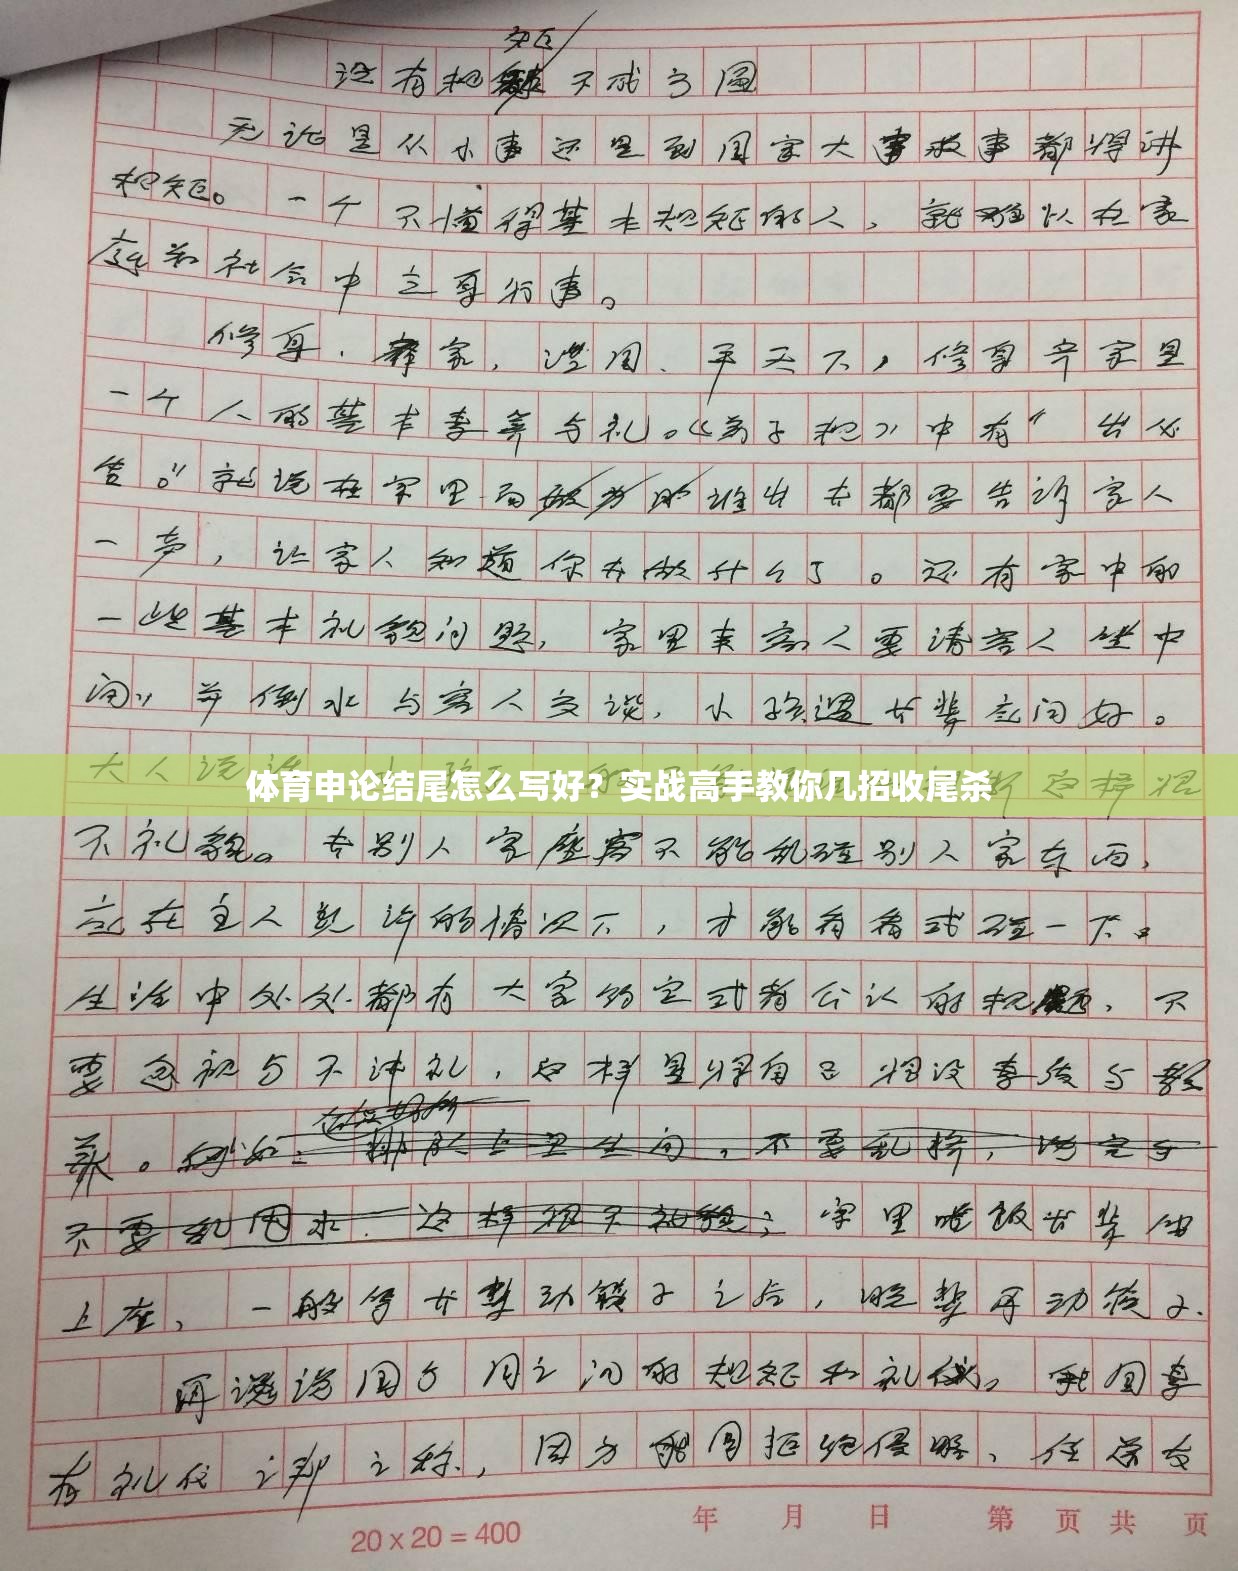 矩
没有规不成方圆
无论是从小事还是到国家大事做事都得讲
规矩。一个不懂得基本规矩的人，就难以在家
庭和社会中立身行事。
修身．齐家，治国、平天下，修身齐家是
一个人的基本素养与礼。《弟子规》中有“出必
告。”就说在家里谁出去都要告诉家人
一声，让家人知道你去做什么了。还有家中的
一些基本礼貌问题，家里来客人要请客人坐中
间，并倒水与客人交谈，小孩遇长辈应问好。
大人说话
体育申论结尾怎么写好？实战高手教你几招收尾杀
不礼貌。去别人家座客不能乱碰别人家东西，
应在主人允许的情况下，才能看看或碰一下。
生活中处处都有大家约定或者公认的规矩，不
要忽视与不讲礼，这样显得自己很没素质与教
养。例如：排队上卫生间，不要乱挤，洗完手
不要乱甩水．这样很不礼貌；家里吃饭长辈坐
上座，一般等长辈动筷子之后，晚辈再动筷子．
再说国与国之间的规矩和礼仪。我国素
有礼仪之邦之称，因为我国拒绝侵略、
20×20=400
年 月 日 第 页 共 页